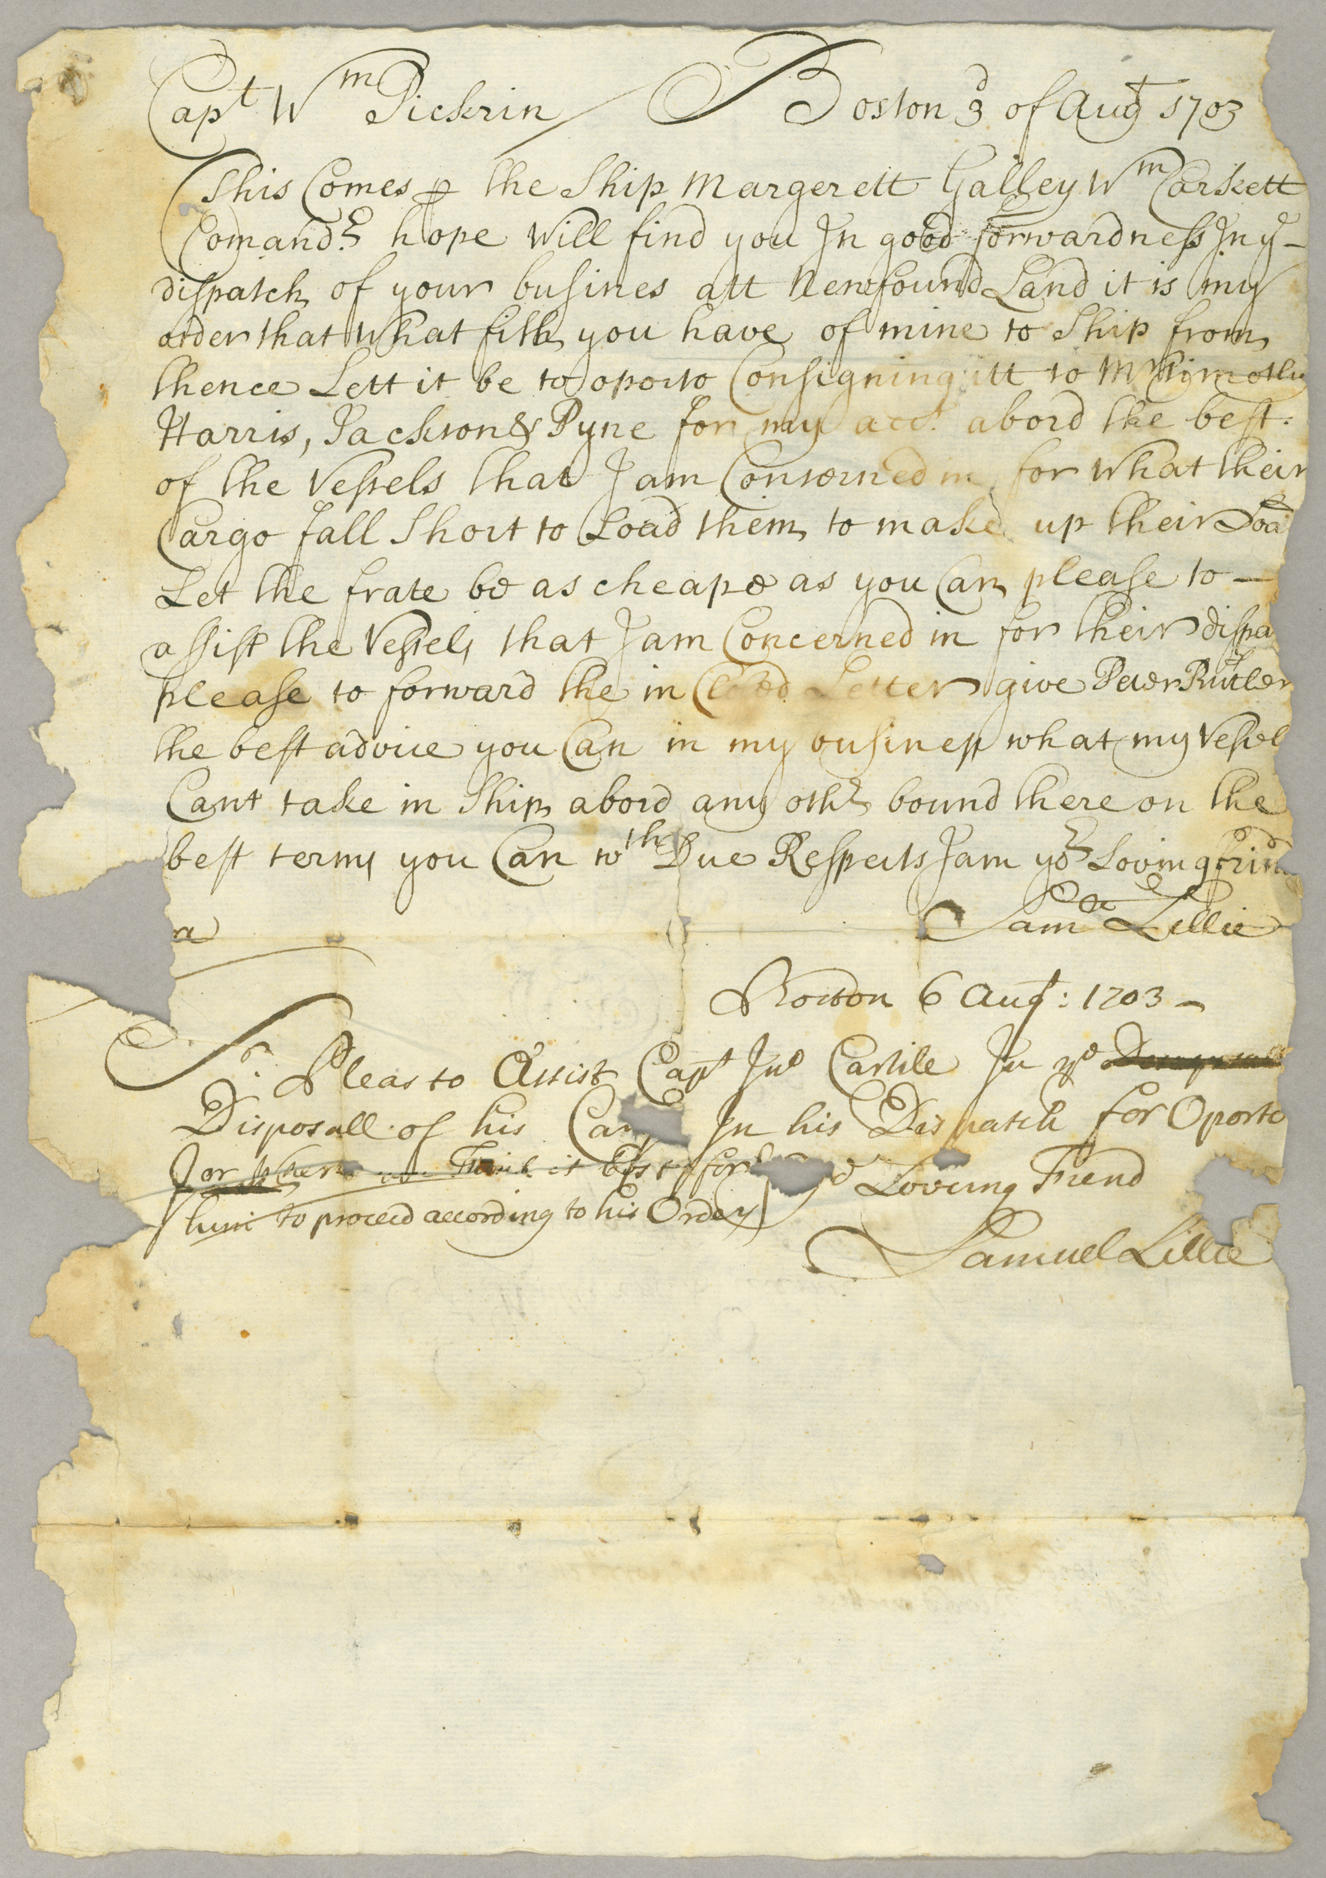 Capt Wm Pickrin Boston 3d of Augt 1703
This Comes p the Ship Margerett Galley Wm Carskett
Comandr hope Will find you In good forwardness In ye
dispatch of your busines att Newfound Land it is my
order that What fish you have of mine to Ship from
thence Lett it be to oporto Consigning itt to Mr Timothy
Harris, Jackson & Pyne for my acct abord the best
of the Vessels that I am Conserned in for What their
Cargo fall Short to Load them to make up their Load
Let the frate be as cheape as you Can please to
assist the Vessels that I am Concerned in for their dispa
please to forward the in Closed Letter give Peter Rutler
the best advice you Can in my business what my Vessel
Cant take in Ship abord any othr bound there on the
best terms you Can wth Due Respects I am yor Loving frind
Samll Lillie
Boston 6 Augt: 1703
Sr. Pleas to Assist Capt Jno Carlile In ye
Disposall of his In his Dispatch for Oporto
or Think it best for
him to proceed according to his Order Loveing Friend
Samuel Lillie